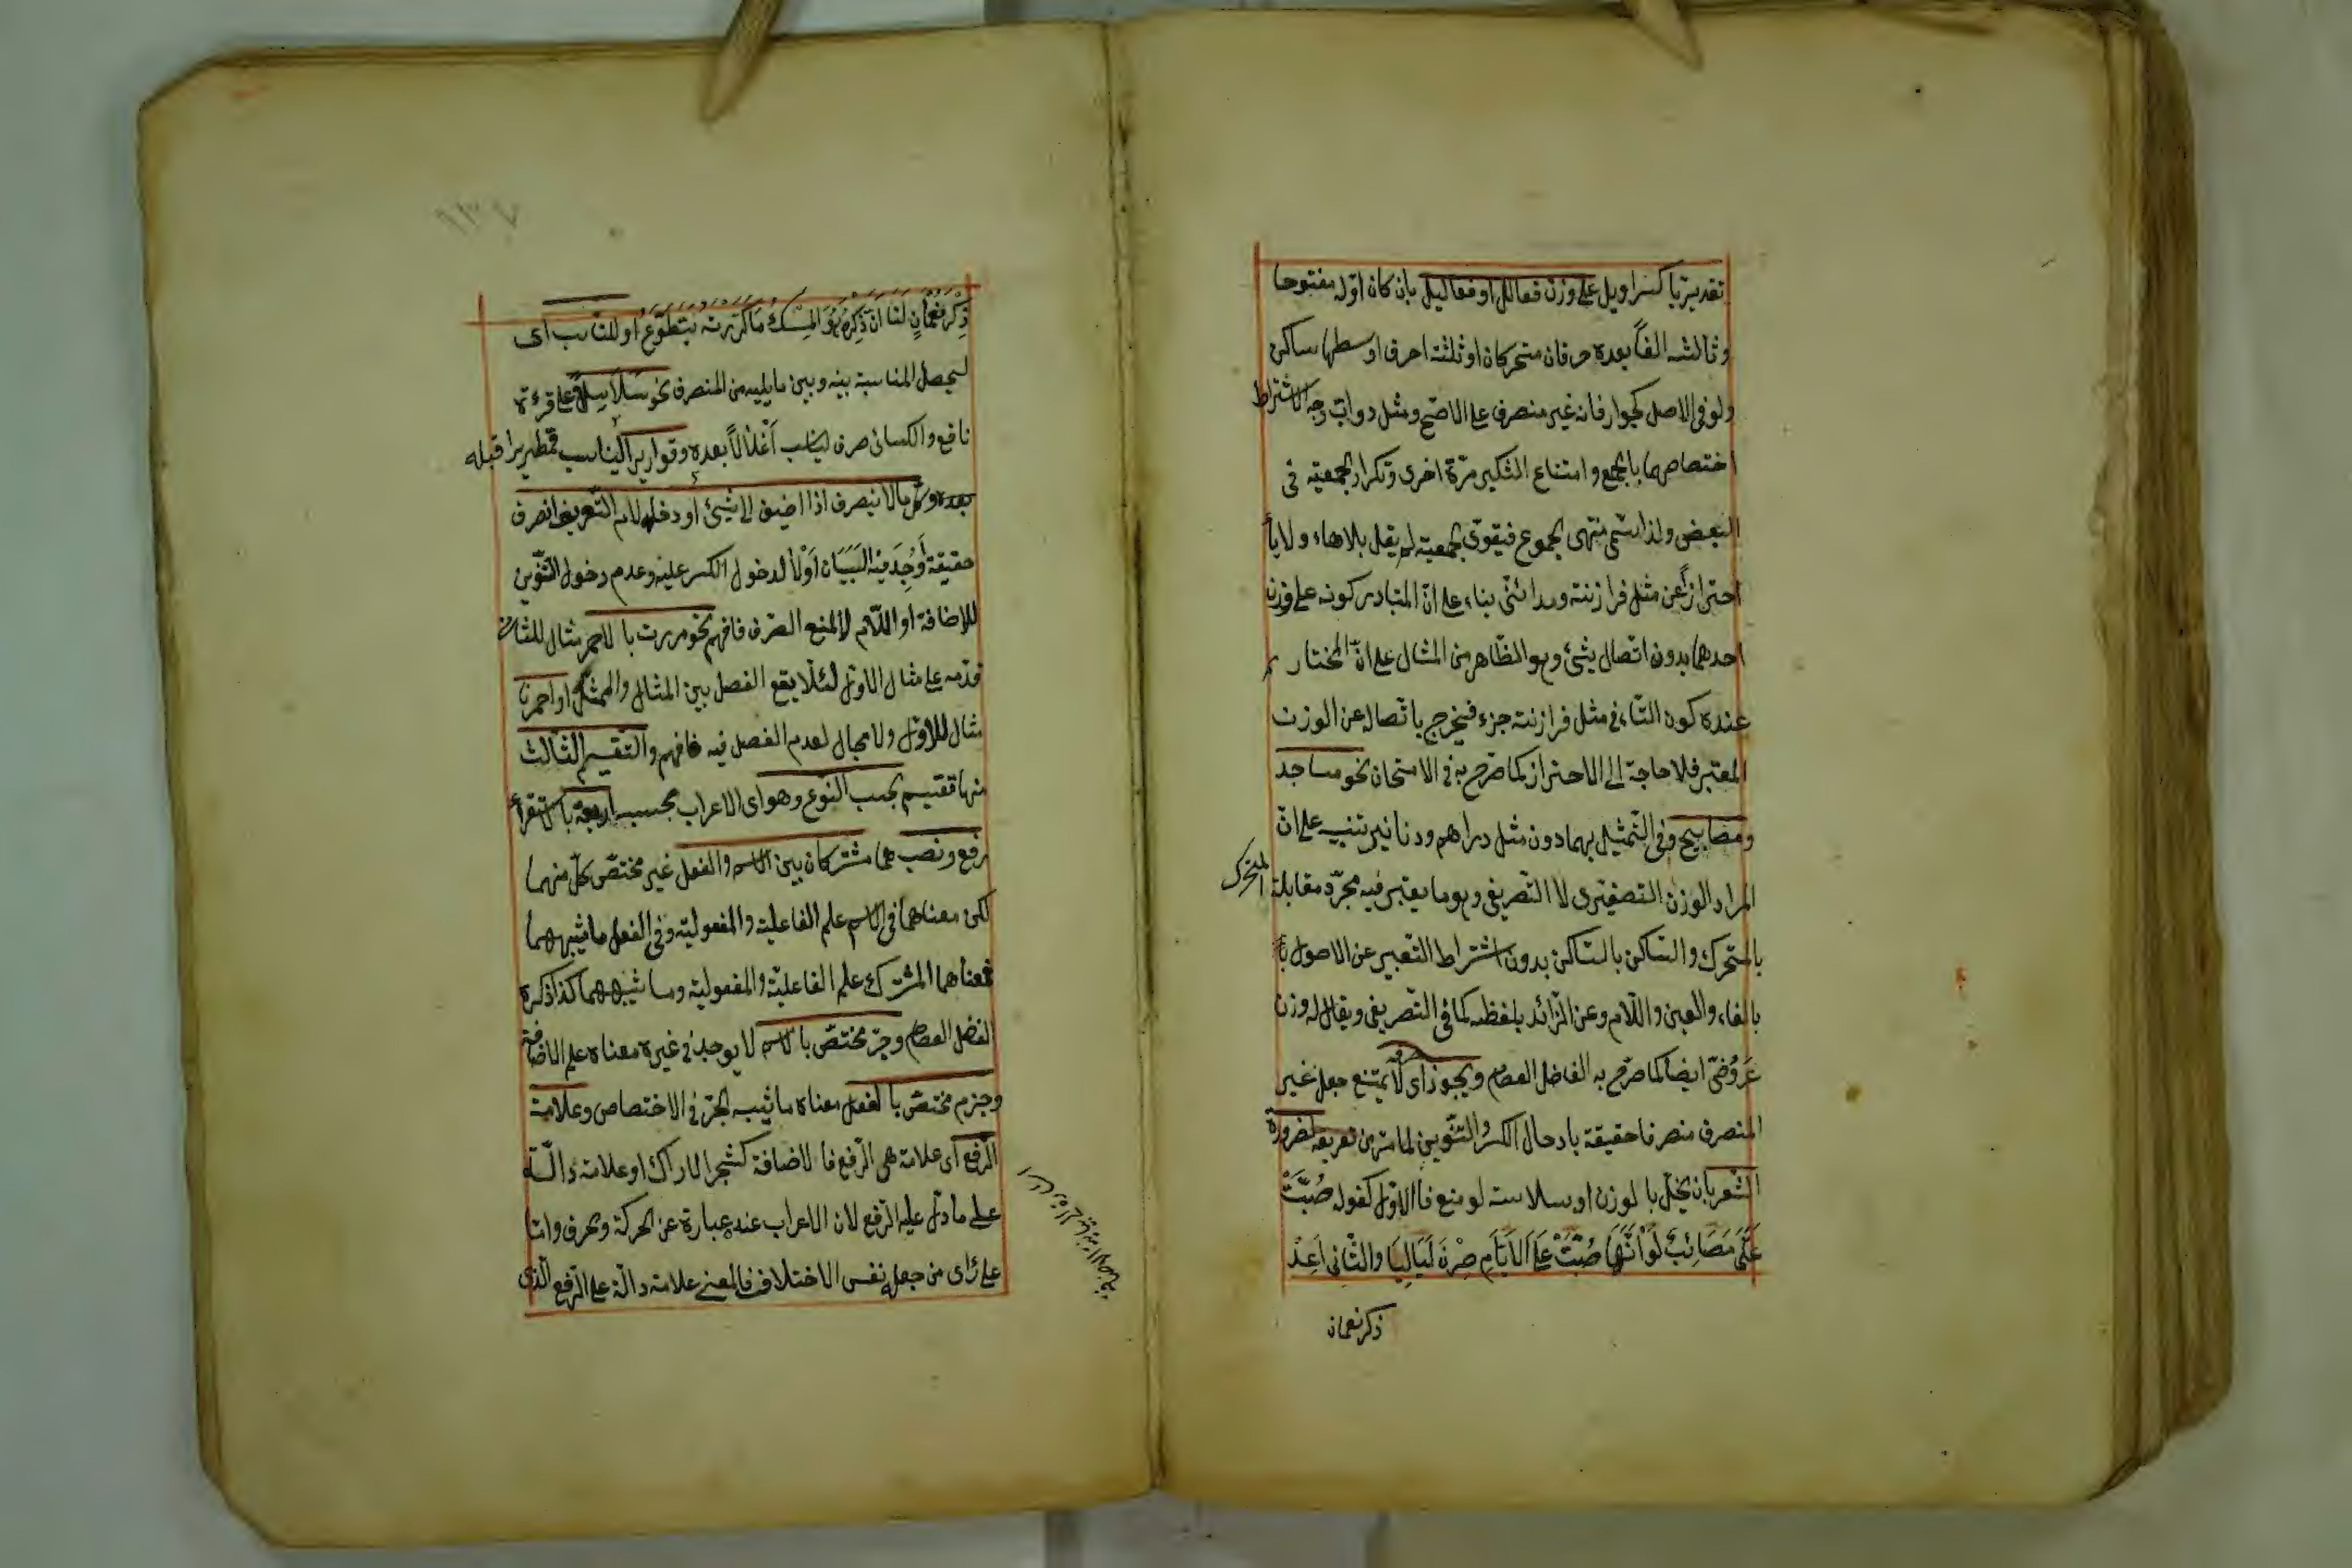 تقديريا كسراويل على وزن فعالل او فعاليل بان كان اوّله مفتوحا
وثالثه الفاً بعده حرفان متحركان او ثلثة احرف اوسطها ساكن
ولو فى الاصل كجوار فانه غير منصرف على الاصح ومثل دوابّ وجه الاشتراط
اختصاصهما بالجمع وامتناع التكسير مرّة اخرى وتكرار الجمعية فى
البعض ولذا سمّى منتهى الجموع فيقوّى الجمعية لم يقل بلا هاء ولا يأ
احترازاً عن مثل فرازنة ومدائنى بناء على انّ المتبادر كونه على وزن
احدهما بدون اتصال بشئ وهو الظاهر من المثال على انّ المختار
عنده كون التاء فى مثل فرازنة جزء فيخرج باتصاله عن الوزن
المعتبر فلا حاجة الى الاحتراز كما صرّح به فى الامتحان نحو مساجد
ومصابيح وفى التّمثيل بهما دون مثل دراهم ودنانير تنبيه على انّ
المراد الوزن التصغيرى لا التصريفى وهو ما يعتبر فيه مجرّد مقابلة المتحرك
بالمتحرك والساكن بالساكن بدون اشتراط التعبير عن الاصول
بالفاء والعين واللّام وعن الزّائد بلفظه كما فى التّصريفى ويقال له وزن
عَرُوضىّ ايضا كما صرّح به الفاضل العصام ويجوز اى لا يمتنع جعل غير
المنصرف منصرفا حقيقة بادخال الكسر والتّنوين لما مرّ من تعريفه لضرورة
الشّعر بان يخلّ بالوزن او سلاسته لو منع فالاوّل كقوله صُبَّتْ
عَلَىَّ مَصَائِبٌ لَوْ اَنَّهَا صُبَّتْ عَلَى الْاَيَّامِ صِرْنَ لَيَالِيَا والثّانى اَعِدْ
ذكر نعمان
ذِكْرَ نُعْمَانٍ لَنَا اَنَّ ذِكْرَهُ هُوَ الْمِسْكُ مَا كَرَّرْتَهُ يَتَضَوَّعُ او للتّناسب اى
ليحصل المناسبة بينه وبين ما يليه من المنصرف نحو سَلَاسِلاً على قرءة
نافع والكسائى صرف ليناسب اَغْلَالاً بعده وقواريرا ليناسب قمطريرا قبله
بعده وكلّ ما لا ينصرف اذا اضيف الى شئ او دخله لام التّعريف انصرف
حقيقة اَوُجِدَ فيه السَّبَبَان اَوْ لَا لدخول الكسر عليه وعدم دخول التّنوين
للاضافة او اللّام لا لمنع الصّرف فافهم نحو مررت بالاحمر مثال للثانى
قدّمه على مثال الاوّل لئلّا يقع الفصل بين المثال والممثّل او احمرنا
مثال للاوّل ولا مجال لعدم الفصل فيه فافهم والتقسيم الثّالث
منها تقسيم بحسب النّوع وهو اى الاعراب بحسبه اربعة بالاستقراء
رفع ونصب هما مشتركان بين الاسم والفعل غير مختصّ كلّ منهما
لكن معناهما فى الاسم علم الفاعلية والمفعولية وفى الفعل ما شبههما
فمعناهما المشترك علم الفاعليّة والمفعولية وما شبههما كذا ذكره
الفضل العصام وجرّ مختصّ بالاسم لا يوجد فى غيره معناه علم الاضافة
وجزم مختصّ بالفعل معناه ما شبه الجرّ فى الاختصاص وعلامة
الرّفع اى علامة هى الرّفع فالاضافة كشجر الاراك او علامة دالّة
على ما دلّ عليه الرّفع لان الاعراب عنده عبارة عن الحركة والحرف وامّا
على رأى من جعله نفس الاختلاف فالمعنى علامة دالّة على الرّفع الّذى